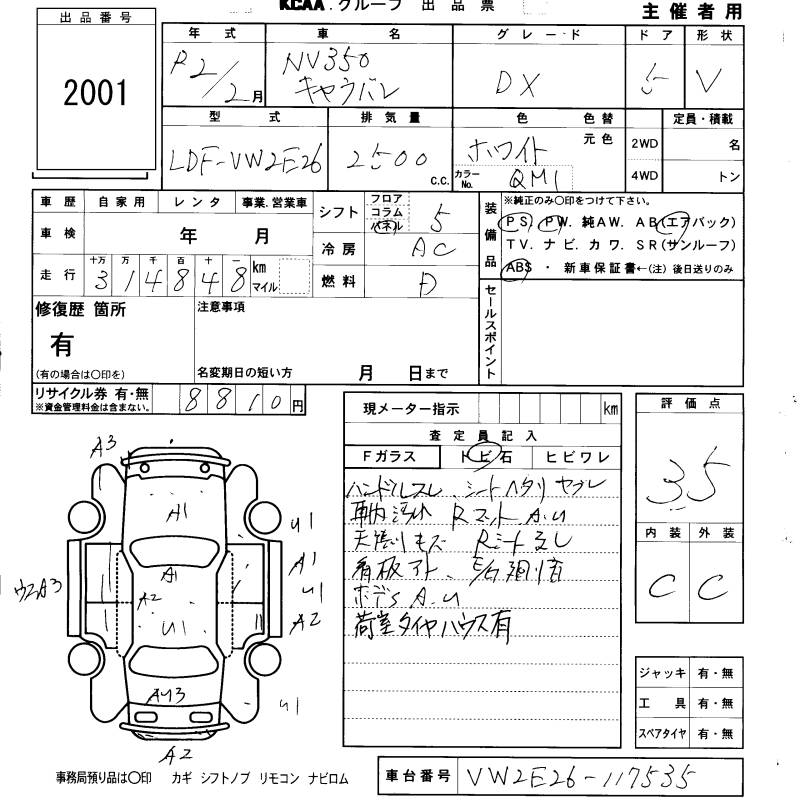 KCAA.グループ 出品票 主催者用
出品番号
2001
年式 車名 グレード ドア 形状
R2/2月 NV350 キャラバン DX 5 V
型式 排気量 色 色替 定員・積載
LDF-VW2E26 2500 C.C. ホワイト 元色 2WD 名
カラーNo. QM1 4WD トン
車歴 自家用 レンタ 事業.営業車 シフト フロア コラム パネル 5
装備品 ※純正のみ○印をつけて下さい。
PS. PW. 純AW. AB(エアバック)
TV. ナビ. カワ. SR(サンルーフ)
ABS ・ 新車保証書←(注) 後日送りのみ
車検 年 月 冷房 AC
走行 十万 万 千 百 十 一 km マイル
314848 燃料 D
修復歴 箇所 注意事項 セールスポイント
有
(有の場合は○印を) 名変期日の短い方 月 日まで
リサイクル券 有・無 8810円
※資金管理料金は含まない。
現メーター指示 km 評価点
査定員記入
Fガラス トビ石 ヒビワレ
3.5
ハンドルスレ、シートヘタリ ヤブレ
車内汚れ Rマット A.U
天張りキズ Rシート立し
看板アト、E/G廻り音
ボデS A.U
荷室タイヤハウス有
内装 外装
C C
A3
A1 U1
A1 A1
ウスA3 A2 U1
U1 A2
AU3 U1
A2
ジャッキ 有・無
工具 有・無
スペアタイヤ 有・無
事務局預り品は○印 カギ シフトノブ リモコン ナビロム
車台番号 VW2E26-117535